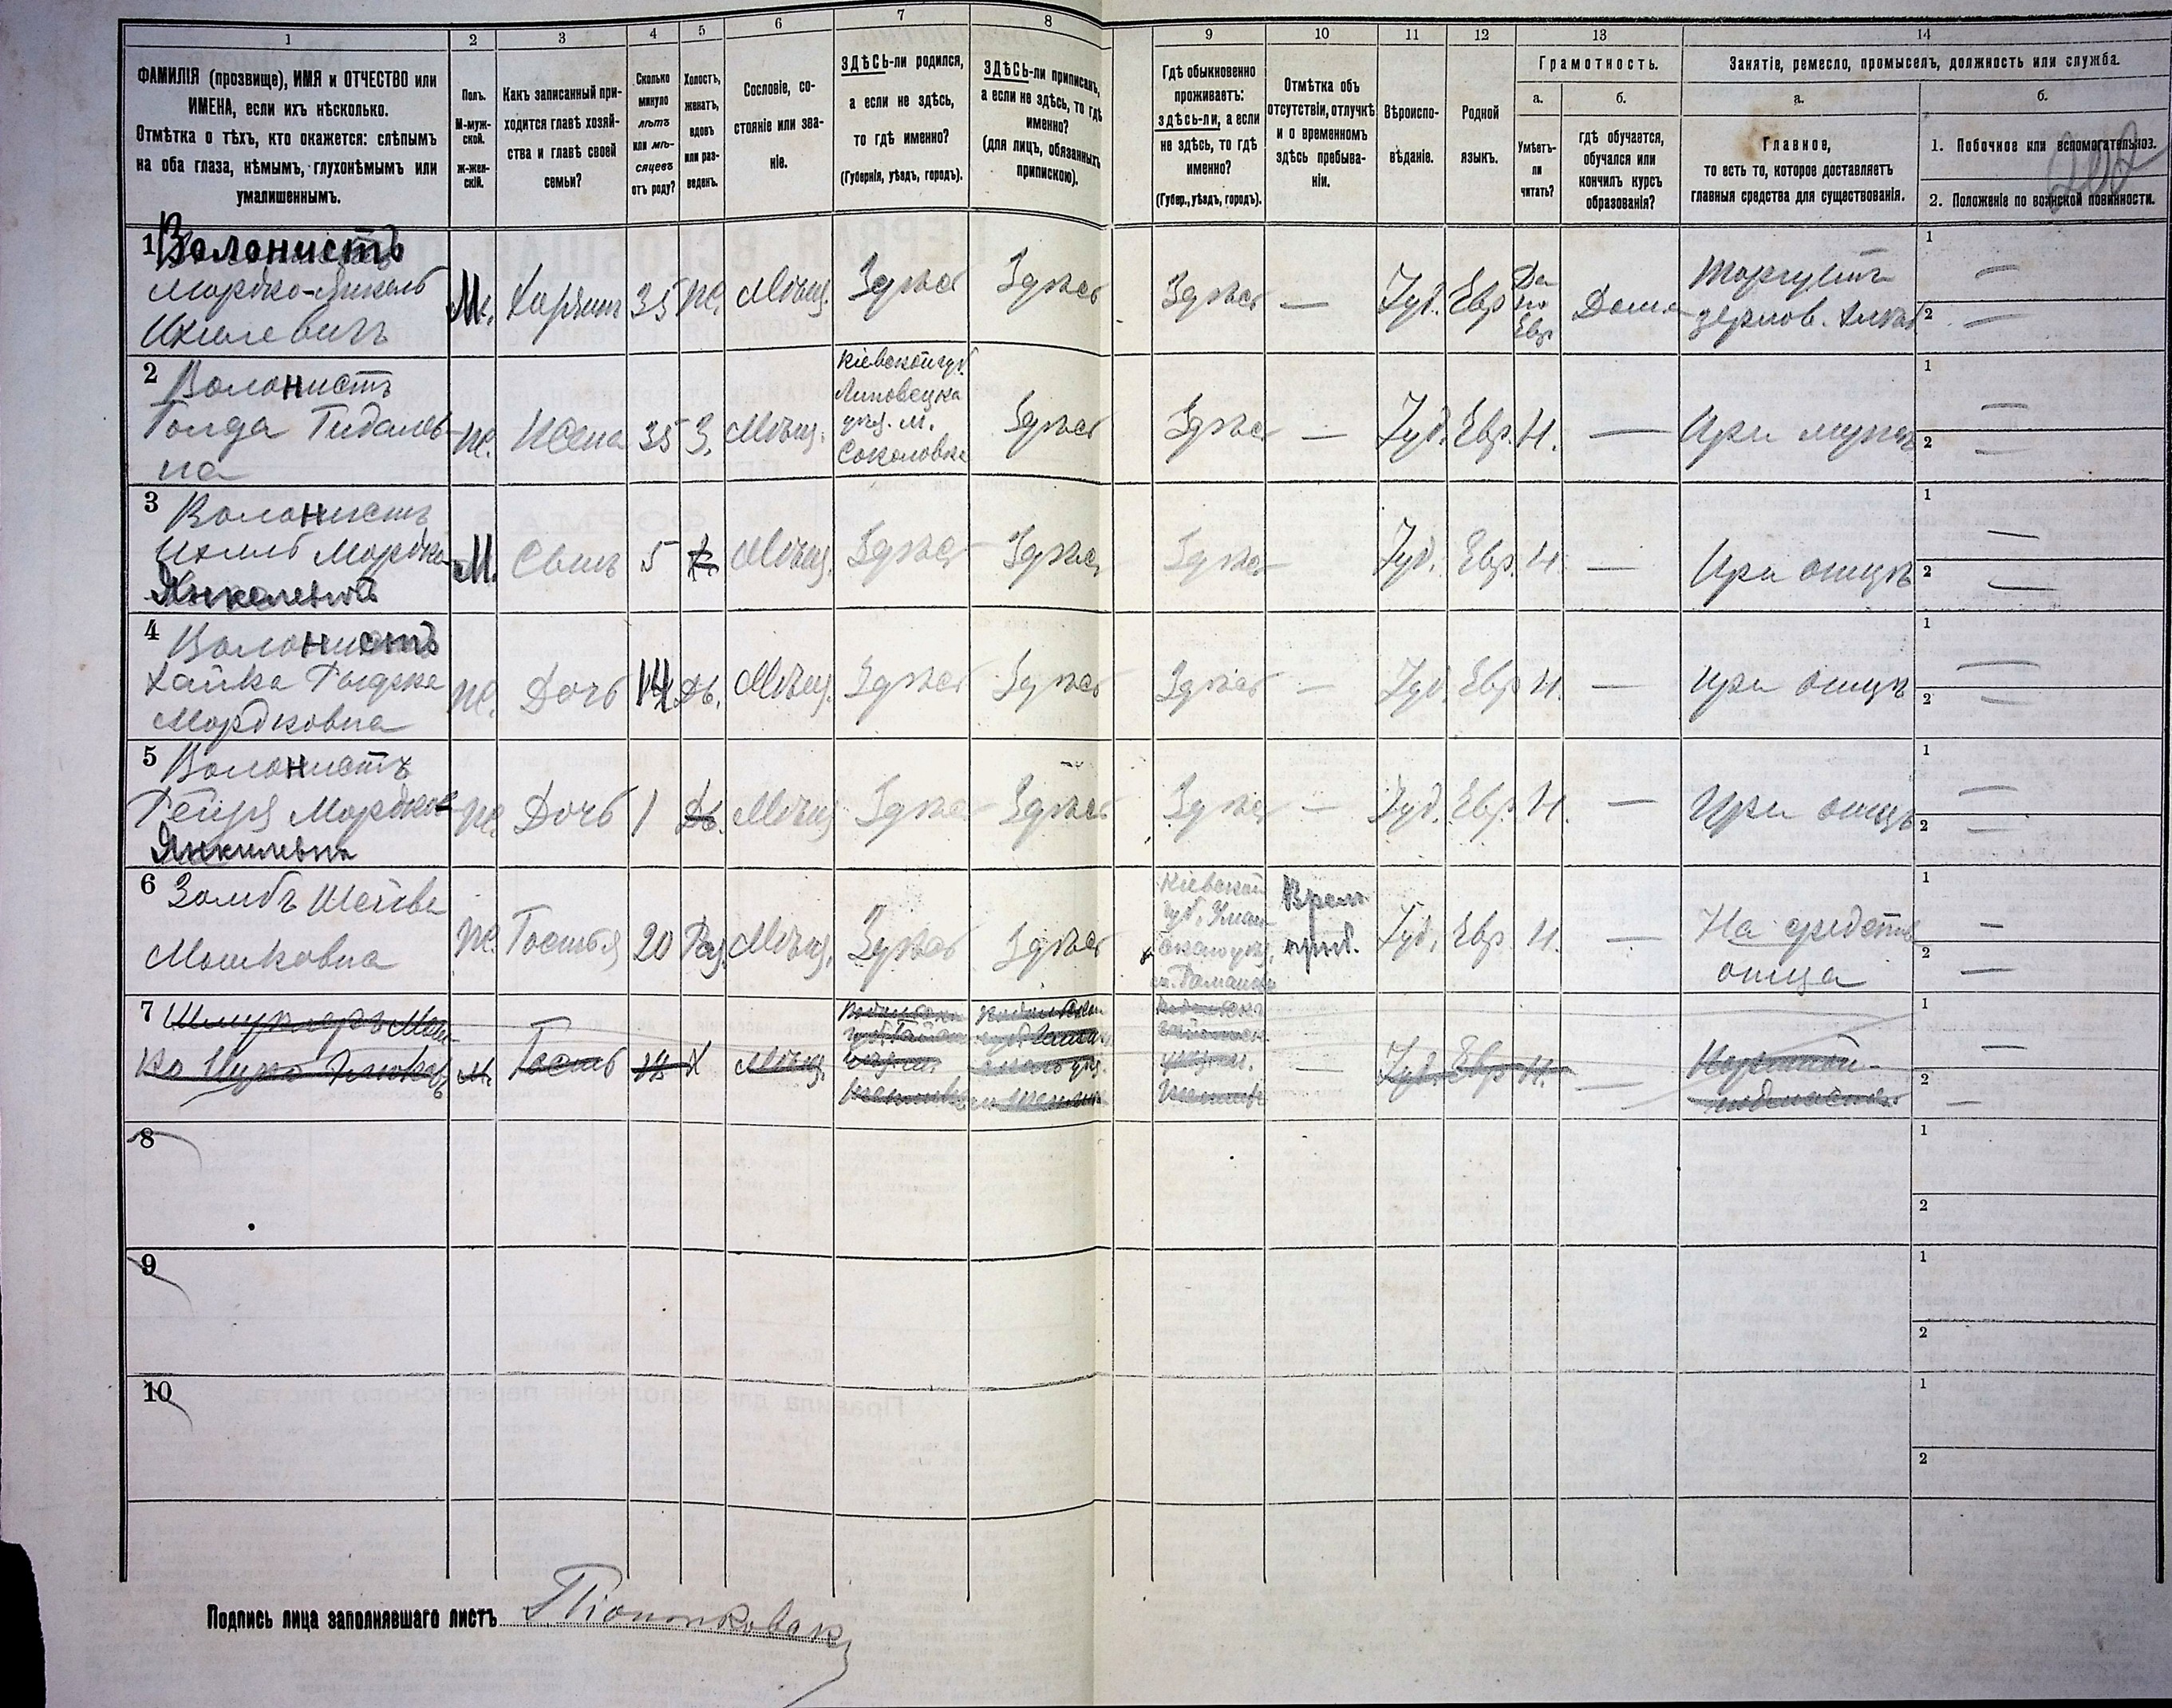 1
2
3
4
5
6
7
8
9
10
11
12
13
14
ФАМИЛІЯ (прозвище), ИМЯ и ОТЧЕСТВО или
ИМЕНА, если ихъ нѣсколько.
Отмѣтка о тѣхъ, кто окажется: слѣпымъ
на оба глаза, нѣмымъ, глухонѣмымъ или
умалишеннымъ.
Полъ.
М-муж-
ской.
Ж-жен-
скій.
Какъ записанный при-
ходится главѣ хозяй-
ства и главѣ своей
семьи?
Сколько
минуло
лѣтъ
или мѣ-
сяцевъ
отъ роду?
Холостъ,
женатъ,
вдовъ
или раз-
веденъ.
Сословіе, со-
стояніе или зва-
ніе.
ЗДѢСЬ-ли родился,
а если не здѣсь,
то гдѣ именно?
(Губернія, уѣздъ, городъ).
ЗДѢСЬ-ли приписанъ,
а если не здѣсь, то гдѣ
именно?
(для лицъ, обязанныхъ
припискою).
Гдѣ обыкновенно
проживаетъ:
здѣсь-ли, а если
не здѣсь, то гдѣ
именно?
(Губер., уѣздъ, городъ).
Отмѣтка объ
отсутствіи, отлучкѣ
и о временномъ
здѣсь пребыва-
ніи.
Вѣроиспо-
вѣданіе.
Родной
языкъ.
Грамотность.
а.
Умѣетъ-
ли
читать?
б.
гдѣ обучается,
обучался или
кончилъ курсъ
образованія?
Занятіе, ремесло, промыселъ, должность или служба.
а.
Главное,
то есть то, которое доставляетъ
главныя средства для существованія.
б.
1. Побочное или вспомогательное.
2. Положеніе по воинской повинности.
1 Волонистъ
Мордко-Янкель
Ихилевичъ
М. Хозяинъ 35 Ж. Мѣщ. Здѣсь Здѣсь Здѣсь — Іуд. Евр.
Да
по
Евр.
Дома
Торгуетъ
зернов. хлѣб.
1 —
2 —
2 Волонистъ
Голда Гидалев-
на
Ж. Жена 35 З. Мѣщ.
Кіевской губ.
Липовецка
уѣз. м.
Соколовка
Здѣсь Здѣсь — Іуд. Евр. Н. — При мужѣ
1 —
2 —
3 Волонистъ
Ихиль Мордко
Янкелевъ
М. Сынъ 5 Х. Мѣщ. Здѣсь Здѣсь Здѣсь Іуд. Евр. Н. — При отцѣ
1 —
2 —
4 Волонистъ
Хайка
Мордковна
Ж. Дочь 14 Дѣ. Мѣщ. Здѣсь Здѣсь Здѣсь — Іуд. Евр. Н. — При отцѣ
1 —
2 —
5 Волонистъ
Мордков
Янкилевна
Ж. Дочь 1 Дѣ. Мѣщ. Здѣсь Здѣсь Здѣсь — Іуд. Евр. Н. — При отцѣ
1 —
2 —
6 Шейва
Мошковна
Ж. Гостья 20 Раз. Мѣщ. Здѣсь Здѣсь
Кіевской
губ. Уман-
скаго уѣз.
Врем.
преб.
Іуд. Евр. Н. —
На средств
отца
1 —
2 —
7
М. Гость Х Мѣщ. — Іуд. Евр. Н. —
Портной-
1 —
2 —
8
1
2
9
1
2
10
1
2
Подпись лица заполнявшаго листъ